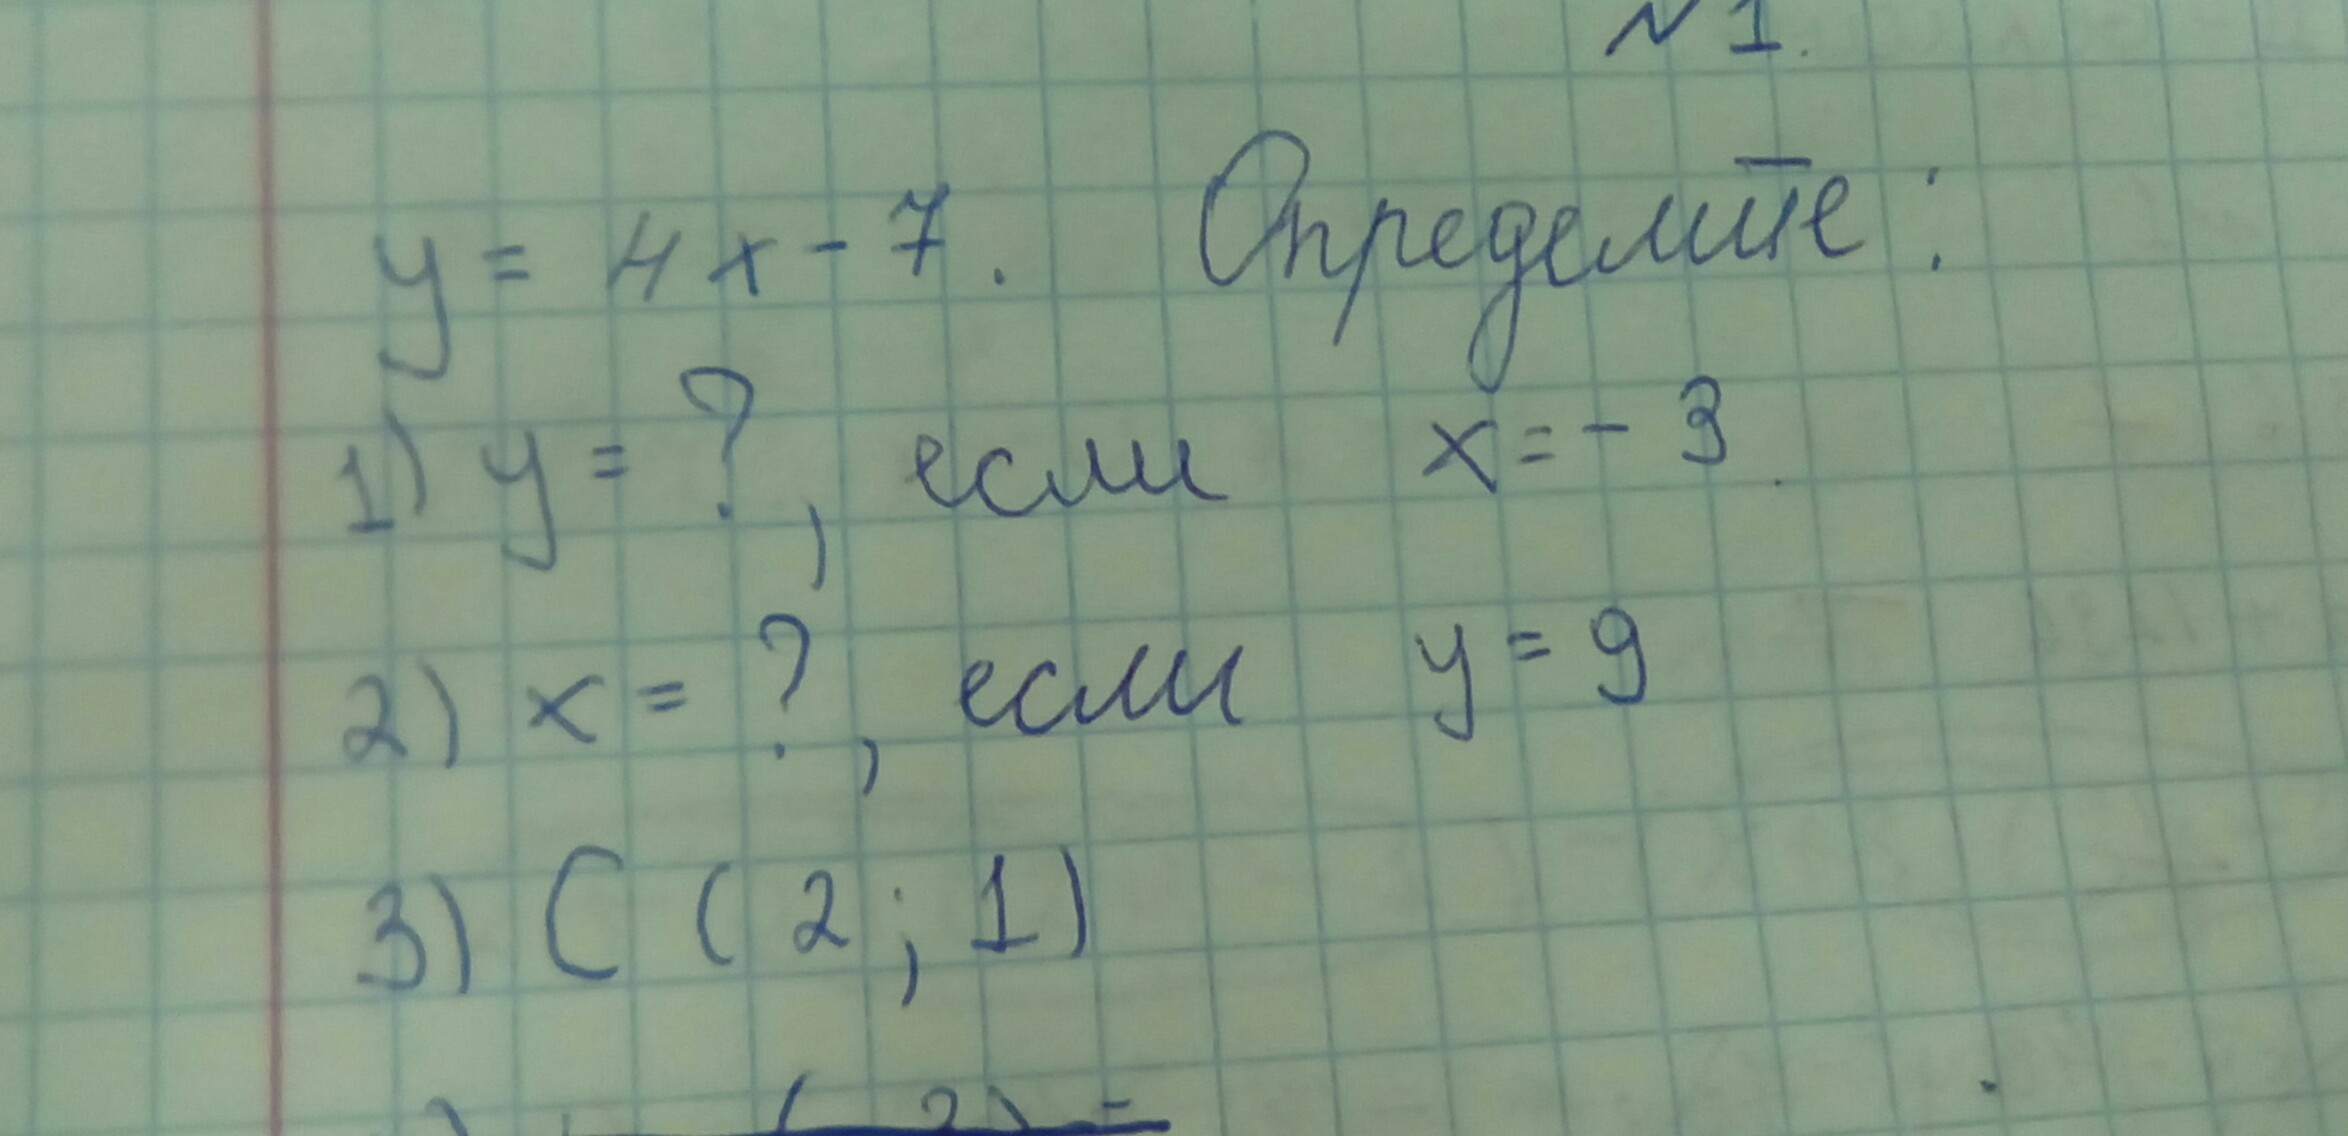 №1.
y = 4x - 7. Определите:
1) y = ?, если x = - 3
2) x = ?, если y = 9
3) C (2; 1)